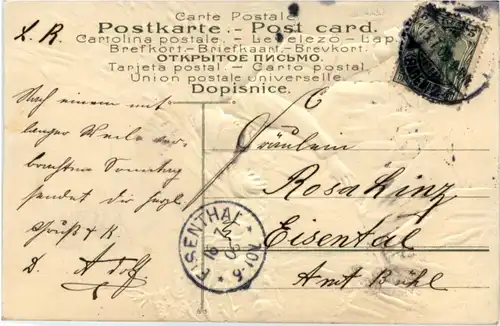 Carte Postale
Postkarte. - Post card.
Cartolina postale. - Levelezo - Lap
Brefkort. - Briefkaart. - Brevkort.
ОТКРЫТОЕ ПИСЬМО.
Tarjeta postal. - Carto postal.
Union postale universelle.
Dopisnice.
L. R.
Nach einem mit
langer Weile ver-
brachten Sonntag
sendet dir herzl.
Gruß & K.
D. Adolf
Fräulein
Rosa Linz
Eisental
Amt Bühl
EISENTHAL